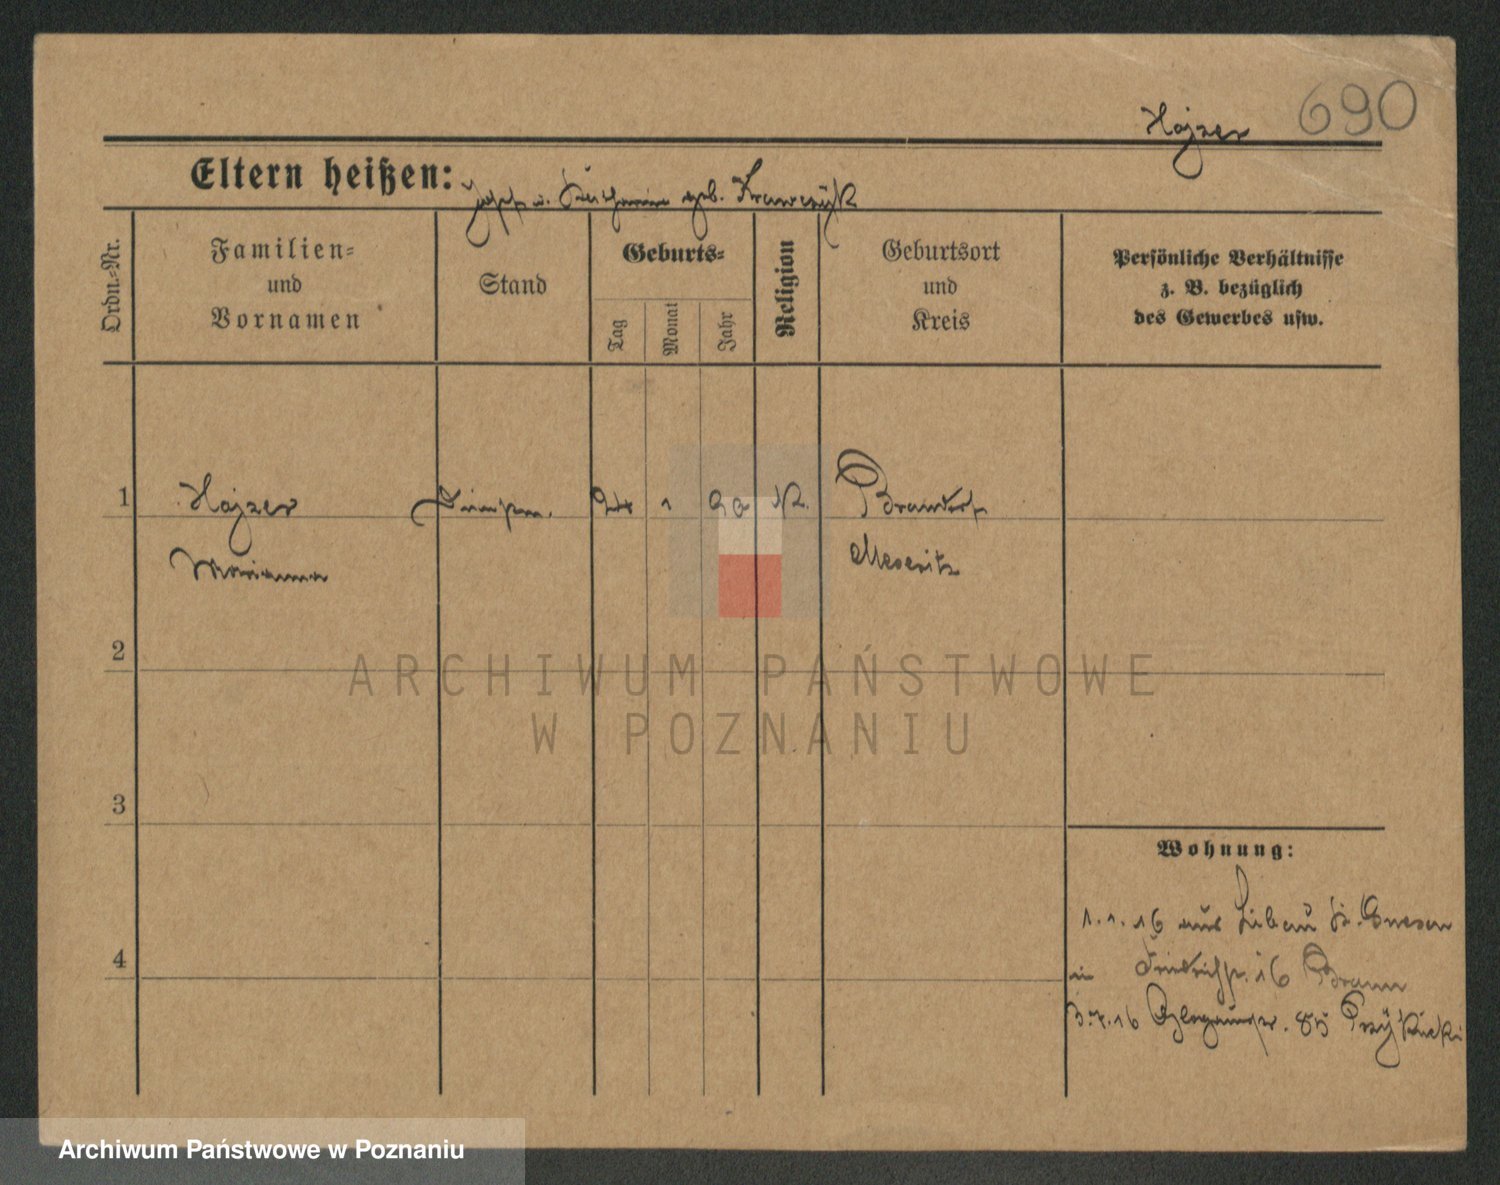 Hajzer 690
Eltern heißen:
geb. Krawczyk
Ordn.-Nr.
Familien-
und
Vornamen
Stand
Geburts-
Tag
Monat
Jahr
Religion
Geburtsort
und
Kreis
Persönliche Verhältnisse
z. B. bezüglich
des Gewerbes usw.
1 Hajzer 24 1 90 K. Brandorf
Marianna Meseritz
2
ARCHIWUM PAŃSTWOWE
W POZNANIU
3
Wohnung:
1.1.16 aus Libau Kr. Gnesen
4
in Friedrichstr. 16 Braun
3.7.16 Glogauerstr. 85
Archiwum Państwowe w Poznaniu